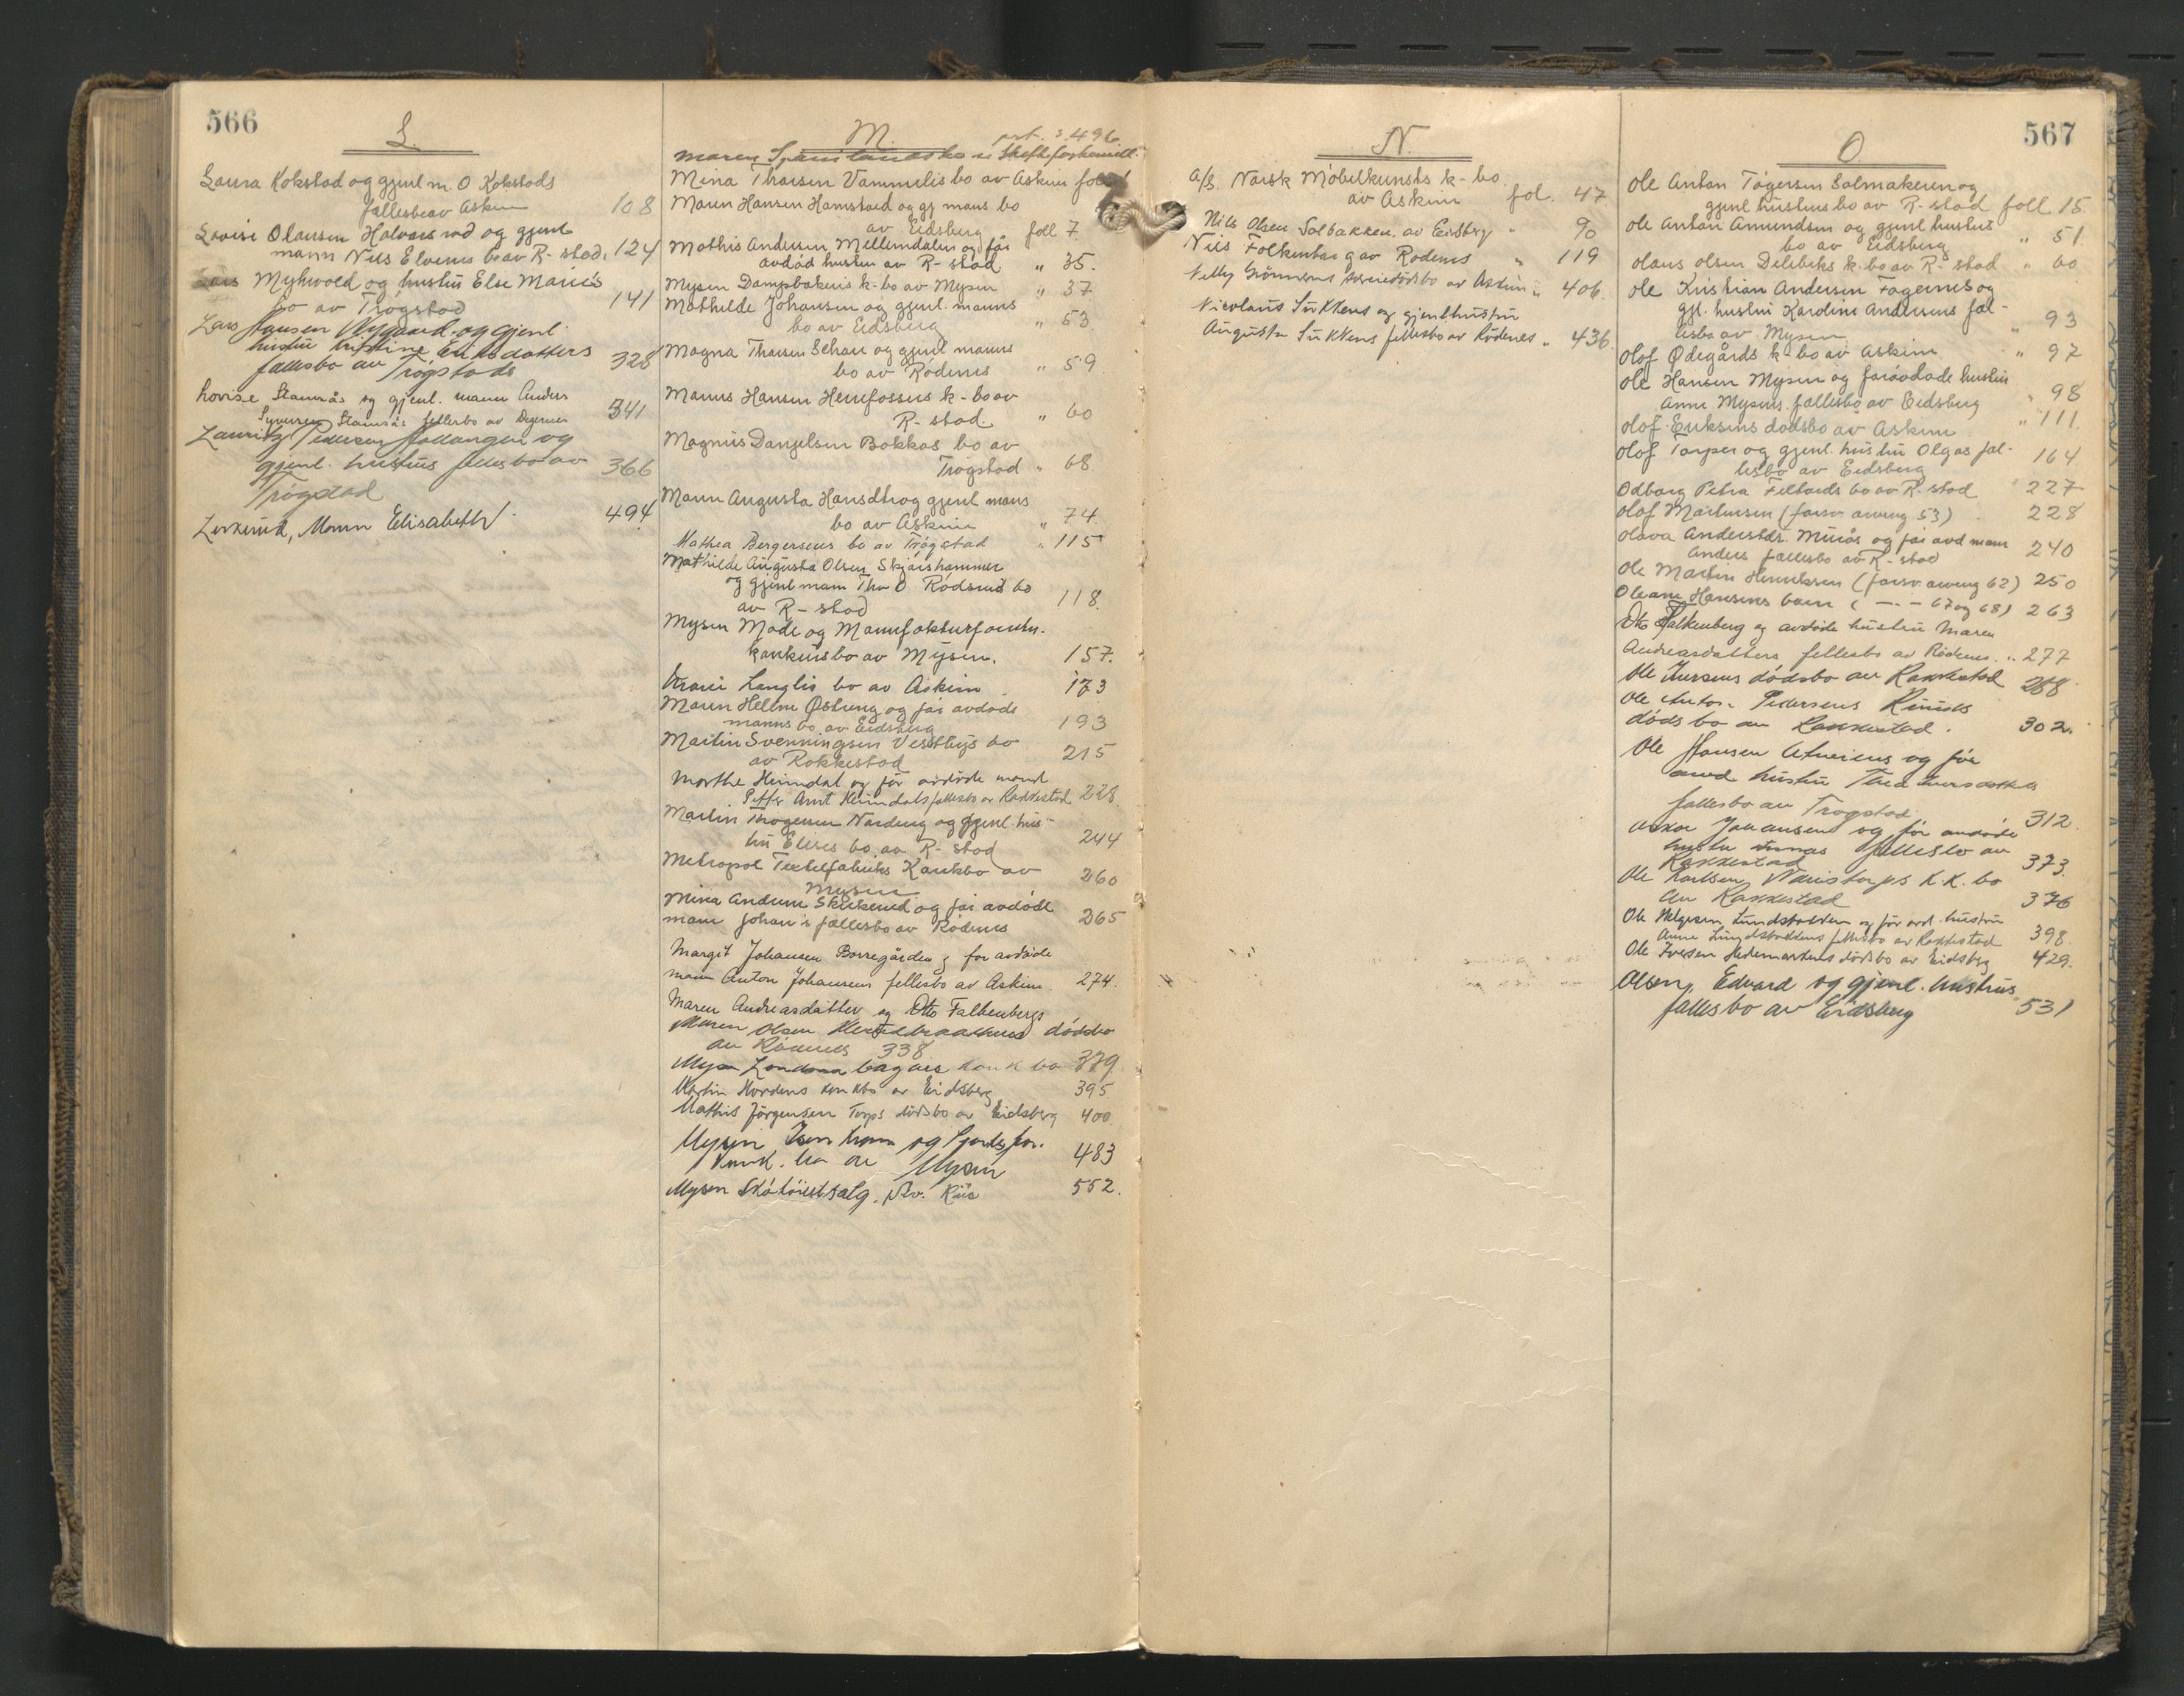 566
L.
Laura Kokstad og gjenl m. O Kokstads
fællesbo av Askim 108
Lovise Olausen Halvorsrød og gjenl
mann Nils Elvenes bo av R-stad. 124
Lars Myhrvold og hustru Else Maries
bo av Trøgstad 141
Lars Hansen Nygaard og gjenl.
hustru Kristine Eriksdatters
fallesbo av Trøgstad 328
Lovise Stamnås og gjenl. mann Anders
Syversen Stamnås fellesbo av Degernes 341
Lauritz Pedersen og
gjenl. hustrus fellesbo av 366
Trøgstad
Lerkerud, Maren Elisabeth 494
M.
prt. s 496
Maren bo se Skifteforhandl.
Mina Thorsen Vammelis bo av Askim fol
Maren Hansen Hamstad og gj mans bo
av Eidsberg foll 7
Mathis Andersen Mellemdalen og før
avdød hustru av R-stad " 35.
Mysen Dampbakeris k-bo av Mysen " 37
Mathilde Johansen og gjenl. manns
bo av Eidsberg " 53
Magna Thorsen og gjenl manns
bo av Rødenes " 59
Hansen Henefossens k-bo av
R-stad. " 60
Magnus Danjelsen Bakkas bo av
Trøgstad " 68
Maren Augusta Hansdtr og gjenl mans
bo av Askim " 74.
Mathea Bergersens bo av Trøgstad " 115
Mathilde Augusta Olsen Skjørshammer
og gjenl mann Thv O Rødsrud bo
av R-stad 118.
Mysen Mode og Manufakturforretn.
konkursbo av Mysen. 157.
Marie Langlis bo av Askim 173
Maren Helene Østereng og før avdøde
manns bo av Eidsberg 193
Martin Svenningsen Vestbys bo
av Rakkestad 215
Marthe Heimdal og før avdøde mand
Petter Arnt Heimdals fellesbo av Rakkestad 228
Martin Thrøgersen Nordeng og gjenl. hus-
tru Elises bo av R-stad 244
Metropol Textilfabriks Konkbo av
Mysen 260
Mina Andersen og før avdøde
mann Johan's fællesbo av Rødenes 265
Margit Johansen Borregården og før avdøde
mann Anton Johansens fellesbo av Askim 274.
Maren Andreasdatter og Otto Falkenbergs
Maren Olsen dødsbo
av Rødenes 338
Mysen konk bo 379
Martin Hordens konkbo av Eidsberg 395.
Mathis Jørgensen Torps dødsbo av Eidsberg 400
Mysen Jernvare og Sportsfor.
konk. bo av Mysen 483
Mysen Skotøiutsalg. Riis 552.
N.
A/S. Norsk Møbelkunsts k-bo
av Askim fol. 47
Nils Olsen Solbakken av Eidsberg " 90
Nils Folkenborg av Rødenes " 119
Nelly dødsbo av Askim " 406
Nicolaus Sukkens og gjenl hustru
Augusta Sukkens fellesbo av Rødenes " 436.
567
O.
Ole Anton Tøgersen Salmakeren og
gjenl hustrus bo av R-stad foll 15.
Ole Anton Amundsen og gjenl hustrus
bo av Eidsberg " 51.
Olaus Olsen Delebeks k. bo av R-stad " 60
Ole Kristian Andersen Fagernes og
gjl. hustru Karoline Andersens fæl-
lesbo av Mysen " 93
Olof Ødegårds k bo av Askim " 97
Ole Hansen Mysen og føravdøde hustru
Anne Mysens fællesbo av Eidsberg " 98
Olof Eriksens dødsbo av Askim " 111.
Olof Torper og gjenl. hustru Olgas fæl-
lesbo av Eidsberg 164
Odborg Petra bo av R-stad 227
Olof Martinsen (forsv. arving 53) 228
Olava Andersdr. Murås og før avd mann
Anders fællesbo av R-stad 240
Ole Martin Henriksen (forsv. arving 62) 250
Oleane Hansens barn ( — " — 67 og 68) 263
Otto Falkenberg og avdøde hustru Maren
Andreasdatters fellesbo av Rødenes " 277
Ole Iversens dødsbo av Rakkestad 288
Ole Anton Pedersens
dødsbo av Rakkestad. 302.
Ole Hansen og før
avd hustru
fellesbo av Trøgstad 312
Oskar Johansens og før avdøde
hustru Annas fellesbo av
Rakkestad 373.
Ole Karlsen K.K. bo
av Rakkestad 376
Ole Helgesen Lundsbakken og før avd. hustru
Anne Lundsbakkens fellesbo av Rakkestad 398
Ole Iversen Hedemarkens dødsbo av Eidsberg 429.
Olsen, Edvard og gjenl. hustrus
fallesbo av Eidsberg 531